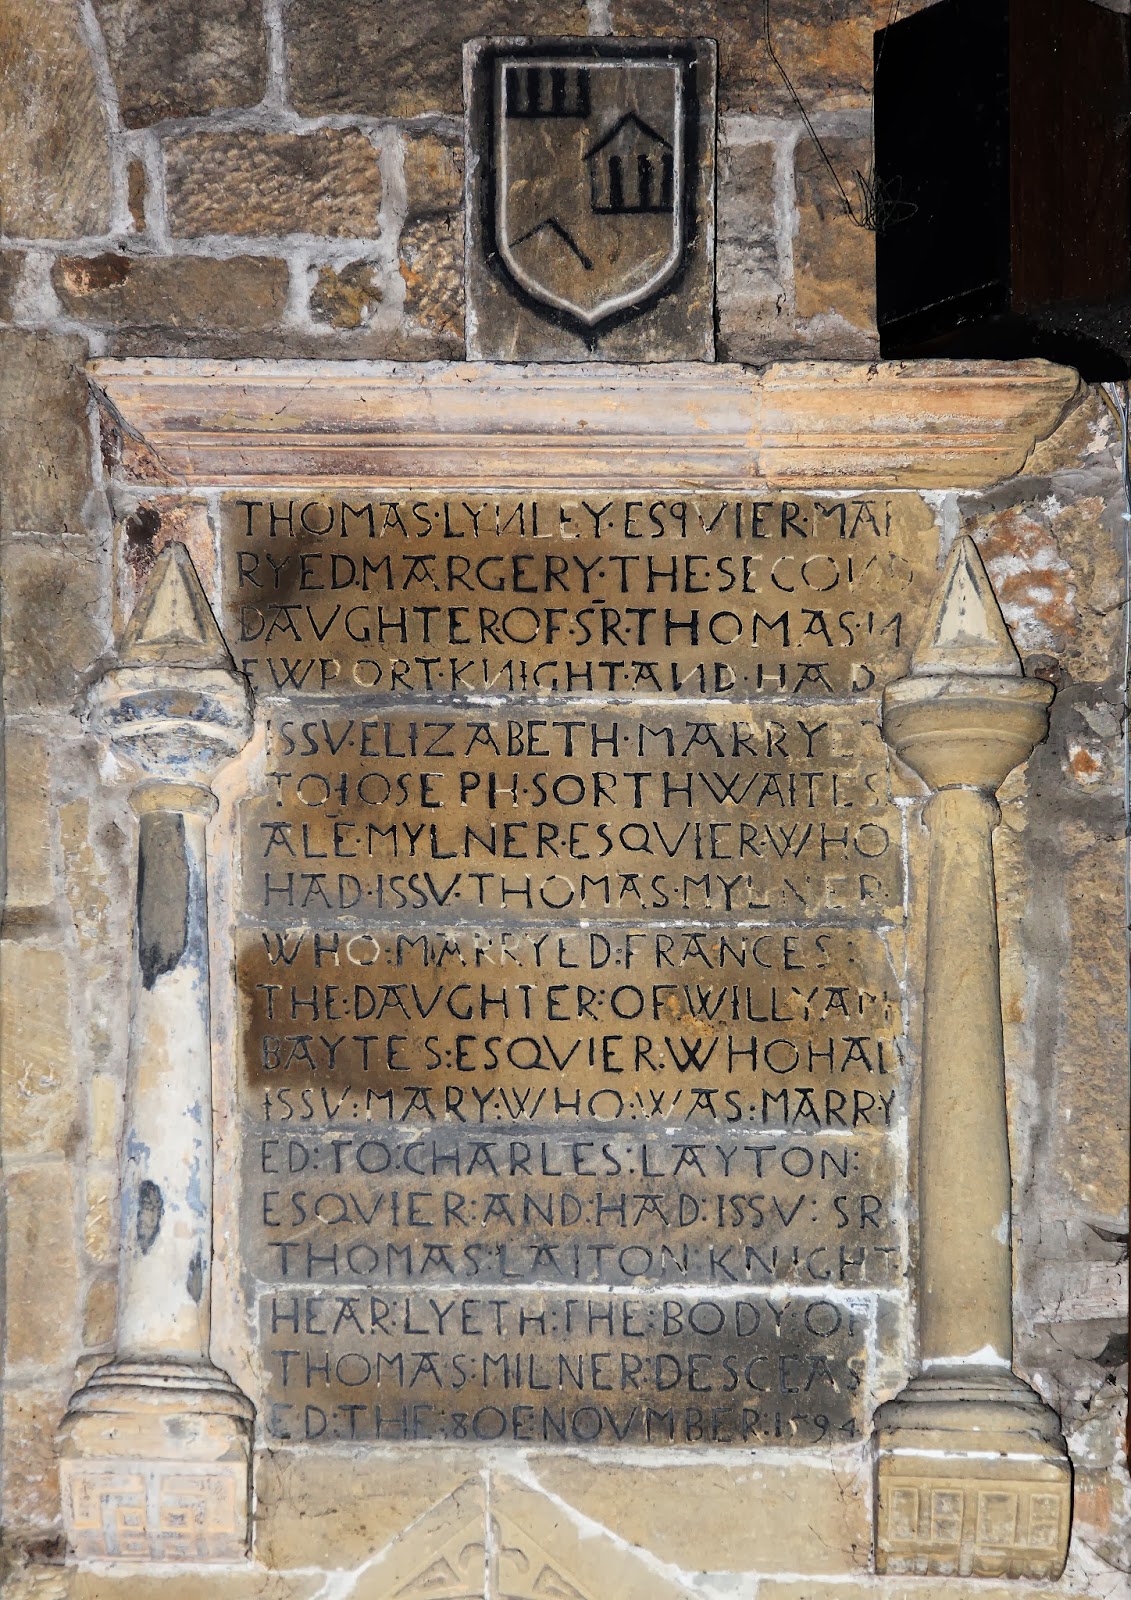 THOMAS·LYNLEY·ESQVIER·MAR
RYED·MARGERY·THE·SECOND
DAVGHTER·OF·SR·THOMAS·IN
EWPORT·KNIGHT·AND·HAD
ISSV·ELIZABETH·MARRYED
TO·IOSEPH·SORTHWAITES
ALE·MYLNER·ESQVIER·WHO
HAD·ISSV·THOMAS·MYLNER·
WHO:MARRYED:FRANCES:
THE:DAVGHTER:OF WILLYAM
BAYTES:ESQVIER:WHO HAD
ISSV:MARY:WHO:WAS:MARRY
ED:TO:CHARLES:LAYTON:
ESQVIER:AND:HAD:ISSV:SR
THOMAS:LAITON·KNIGHT
HEAR:LYETH:THE:BODY·OF
THOMAS:MILNER:DESCEAS
ED:THE:8 OF:NOVMBER:1594